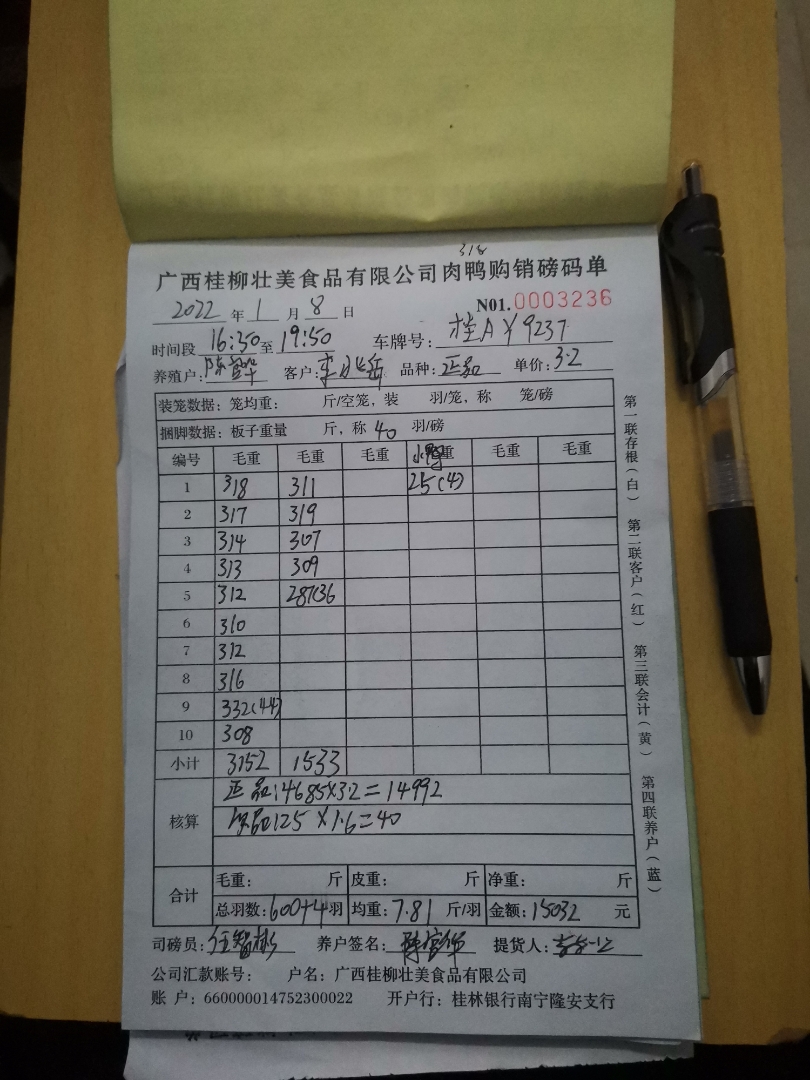 318
广西桂柳壮美食品有限公司肉鸭购销磅码单
2022 年 1 月 8 日 N01.0003236
时间段 16:30至 19:50 车牌号: 桂A Y 9237
养殖户: 客户: 品种: 正品 单价: 3.2
装笼数据: 笼均重: 斤/空笼, 装 羽/笼, 称 笼/磅
捆脚数据: 板子重量 斤, 称 40 羽/磅
编号 毛重 毛重 毛重 小鸭 毛重 毛重
1 318 311 25(4)
2 317 319
3 314 307
4 313 309
5 312 287(36
6 310
7 312
8 316
9 332(44)
10 308
小计 3152 1533
核算 正品:4685×3.2=14992
次品:25×1.6=40
合计 毛重: 斤 皮重: 斤 净重: 斤
总羽数:600+4羽 均重:7.81 斤/羽 金额:15032 元
司磅员: 养户签名: 提货人:
公司汇款账号: 户名: 广西桂柳壮美食品有限公司
账 户: 660000014752300022 开户行: 桂林银行南宁隆安支行
第一联存根(白) 第二联客户(红) 第三联会计(黄) 第四联养户(蓝)